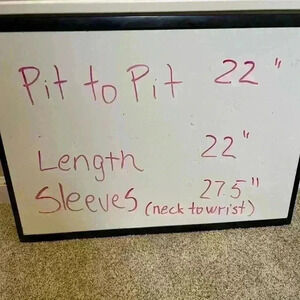 Pit to Pit 22"
Length 22"
Sleeves 27.5"
(neck to wrist)